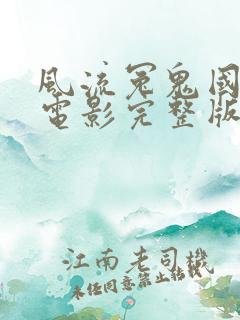 風流冤鬼國
電影完整版
江南老司機
未任同意禁止結載